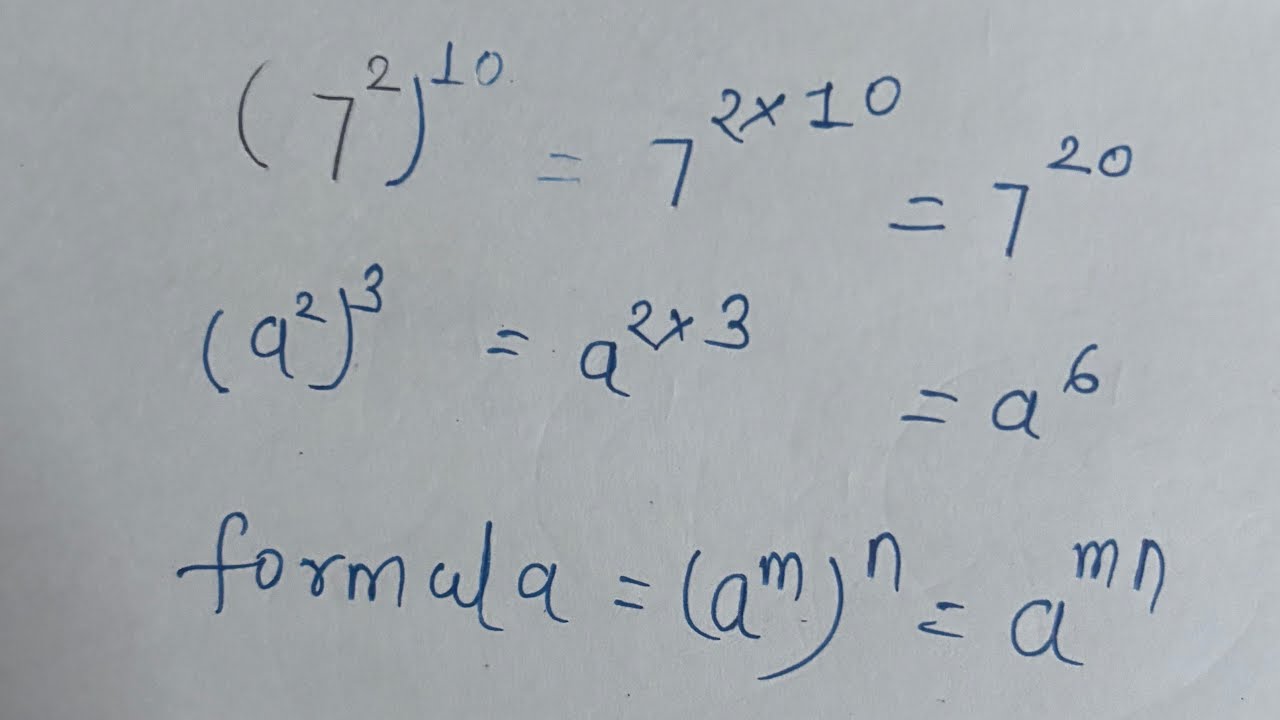 (7²)¹⁰ = 7²ˣ¹⁰ = 7²⁰
(a²)³ = a²ˣ³ = a⁶
formula = (aᵐ)ⁿ = aᵐⁿ